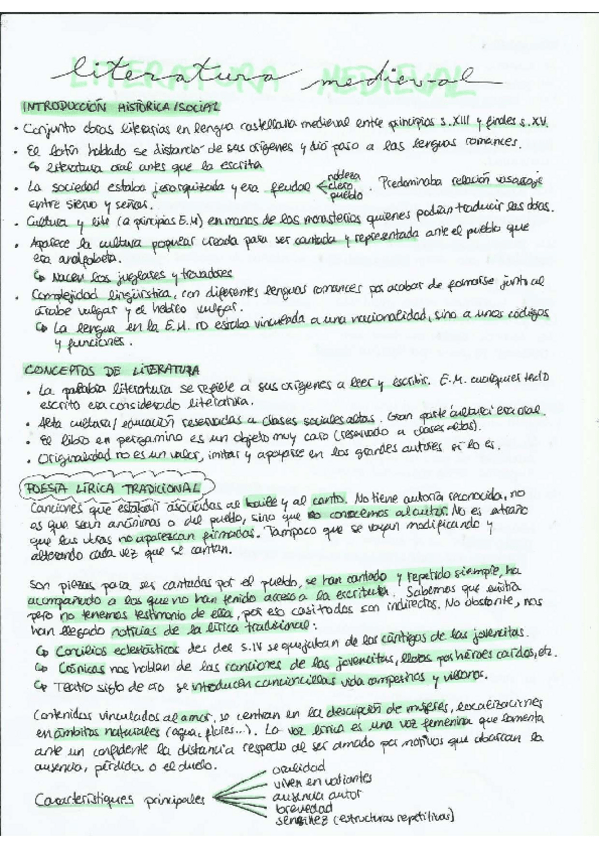 literatura medieval
INTRODUCCIÓN HISTÓRICA/SOCIAL
· Conjunto obras literarias en lengua castellana medieval entre principios s.XIII y finales s.XV.
· El latín hablado se distanció de sus orígenes y dió paso a las lenguas romances.
↳ literatura oral antes que la escrita
· La sociedad estaba jerarquizada y era feudal nobleza clero pueblo. Predominaba relación vasallaje
entre siervo y señor.
· Cultura y lite (a principios E.M) en manos de los monasterios quienes podían traducir las obras.
· Aparece la cultura popular creada para ser cantada y representada ante el pueblo que
era analfabeta.
↳ Nacen los juglares y trovadores
· Complejidad lingüística, con diferentes lenguas romances por acabar de formarse junto al
árabe vulgar y el hebreo vulgar.
↳ La lengua en la E.M. no estaba vinculada a una nacionalidad, sino a unos códigos
y funciones.
CONCEPTOS DE LITERATURA
· La palabra literatura se refiere a sus orígenes a leer y escribir. E.M. cualquier texto
escrito era considerado literatura.
· Alta cultura/educación reservadas a clases sociales altas. Gran parte "cultura" era oral.
· El libro en pergamino es un objeto muy caro (reservado a clases altas).
· Originalidad no es un valor, imitar y apoyarse en los grandes autores sí lo es.
POESÍA LÍRICA TRADICIONAL
Canciones que estaban asociadas al baile y al canto. No tiene autoría reconocida, no
es que sean anónimas o del pueblo, sino que no conocemos al autor. No es extraño
que las obras no aparezcan firmadas. Tampoco que se vayan modificando y
alterando cada vez que se cantan.
Son piezas para ser cantadas por el pueblo, se han cantado y repetido siempre, ha
acompañado a los que no han tenido acceso a la escritura. Sabemos que existía
pero no tenemos testimonio de ella, por eso casi todos son indirectos. No obstante, nos
han llegado noticias de la lírica tradicional:
↳ Concilios eclesiásticos des del S.IV se quejaban de los cántigos de las jovencitas.
↳ Crónicas nos hablan de las canciones de las jovencitas, lloros por héroes caídos, etc.
↳ Teatro siglo de oro se introducen cancioncillas vida campestre y villanos.
Contenidos vinculados al amor, se centran en la descripción de mujeres, localizaciones
en ámbitos naturales (agua, flores...). La voz lírica es una voz femenina que lamenta
ante un confidente la distancia respecto al ser amado por motivos que abarcan la
ausencia, pérdida o el duelo.
Característiques principales
oralidad
viven en variantes
ausencia autor
brevedad
sencillez (estructuras repetitivas)